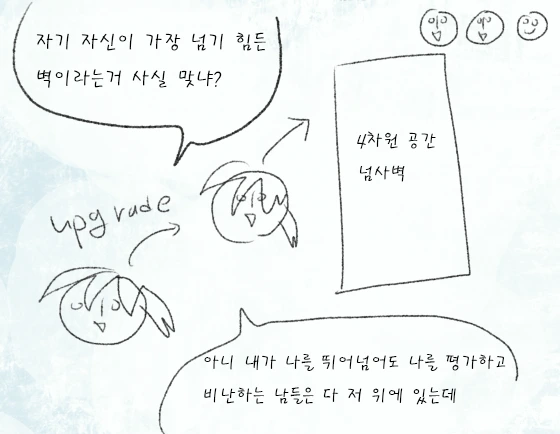 자기 자신이 가장 넘기 힘든
벽이라는거 사실 맞냐?
4차원 공간
넘사벽
upgrade
아니 내가 나를 뛰어넘어도 나를 평가하고
비난하는 남들은 다 저 위에 있는데